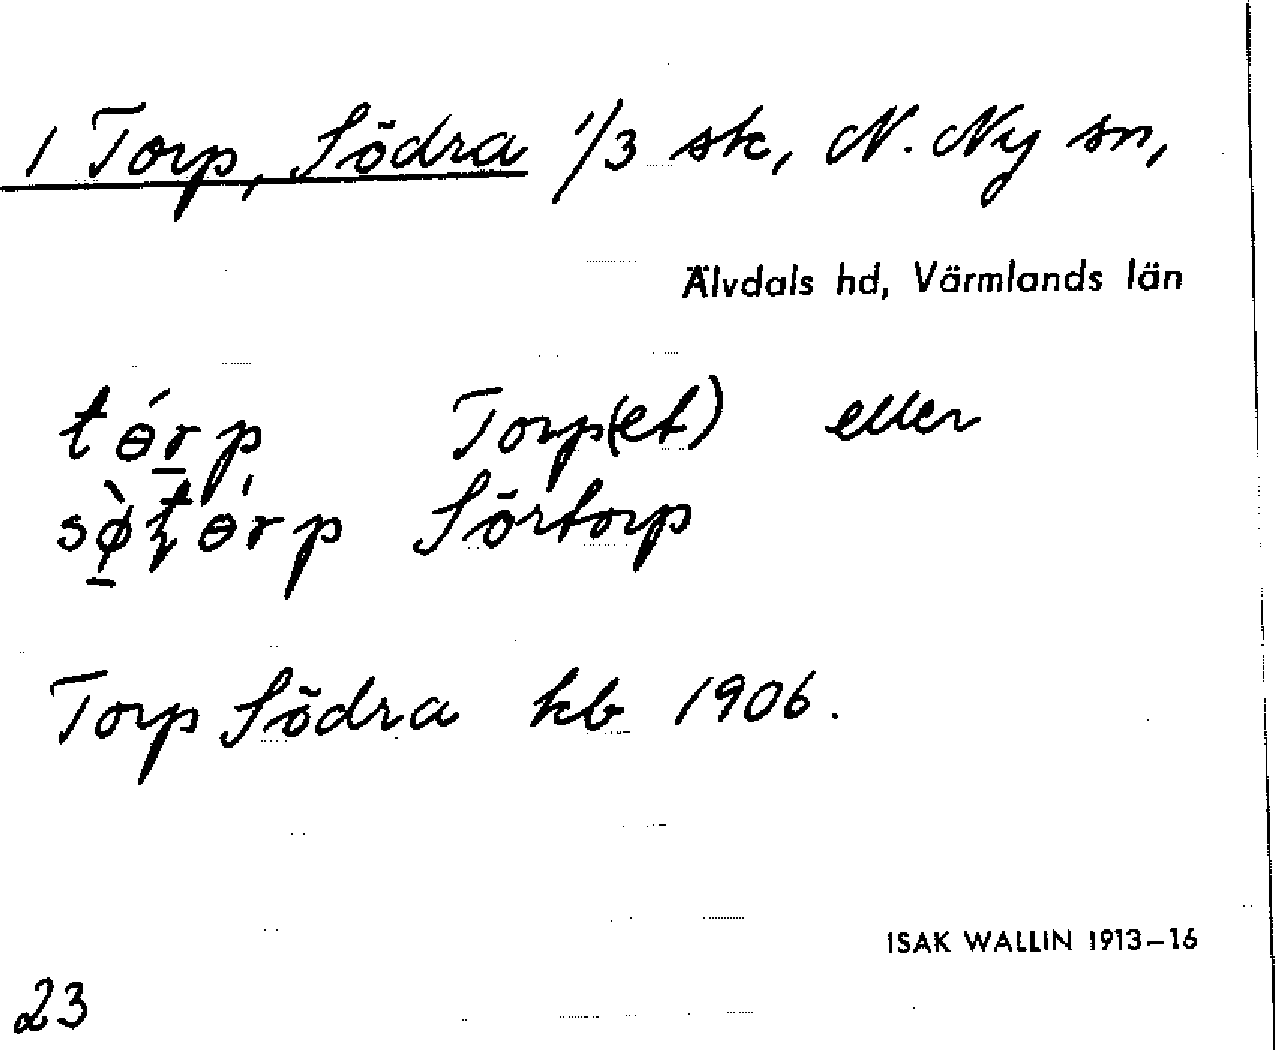 1 Torp, Södra 1/3 sk, N. Ny sn,
Älvdals hd, Värmlands län
tɵ́r̲p Torp(et) eller
sø̲̀ʈɵ́rp Sörtorp
Torp Södra kb 1906.
ISAK WALLIN 1913–16
23